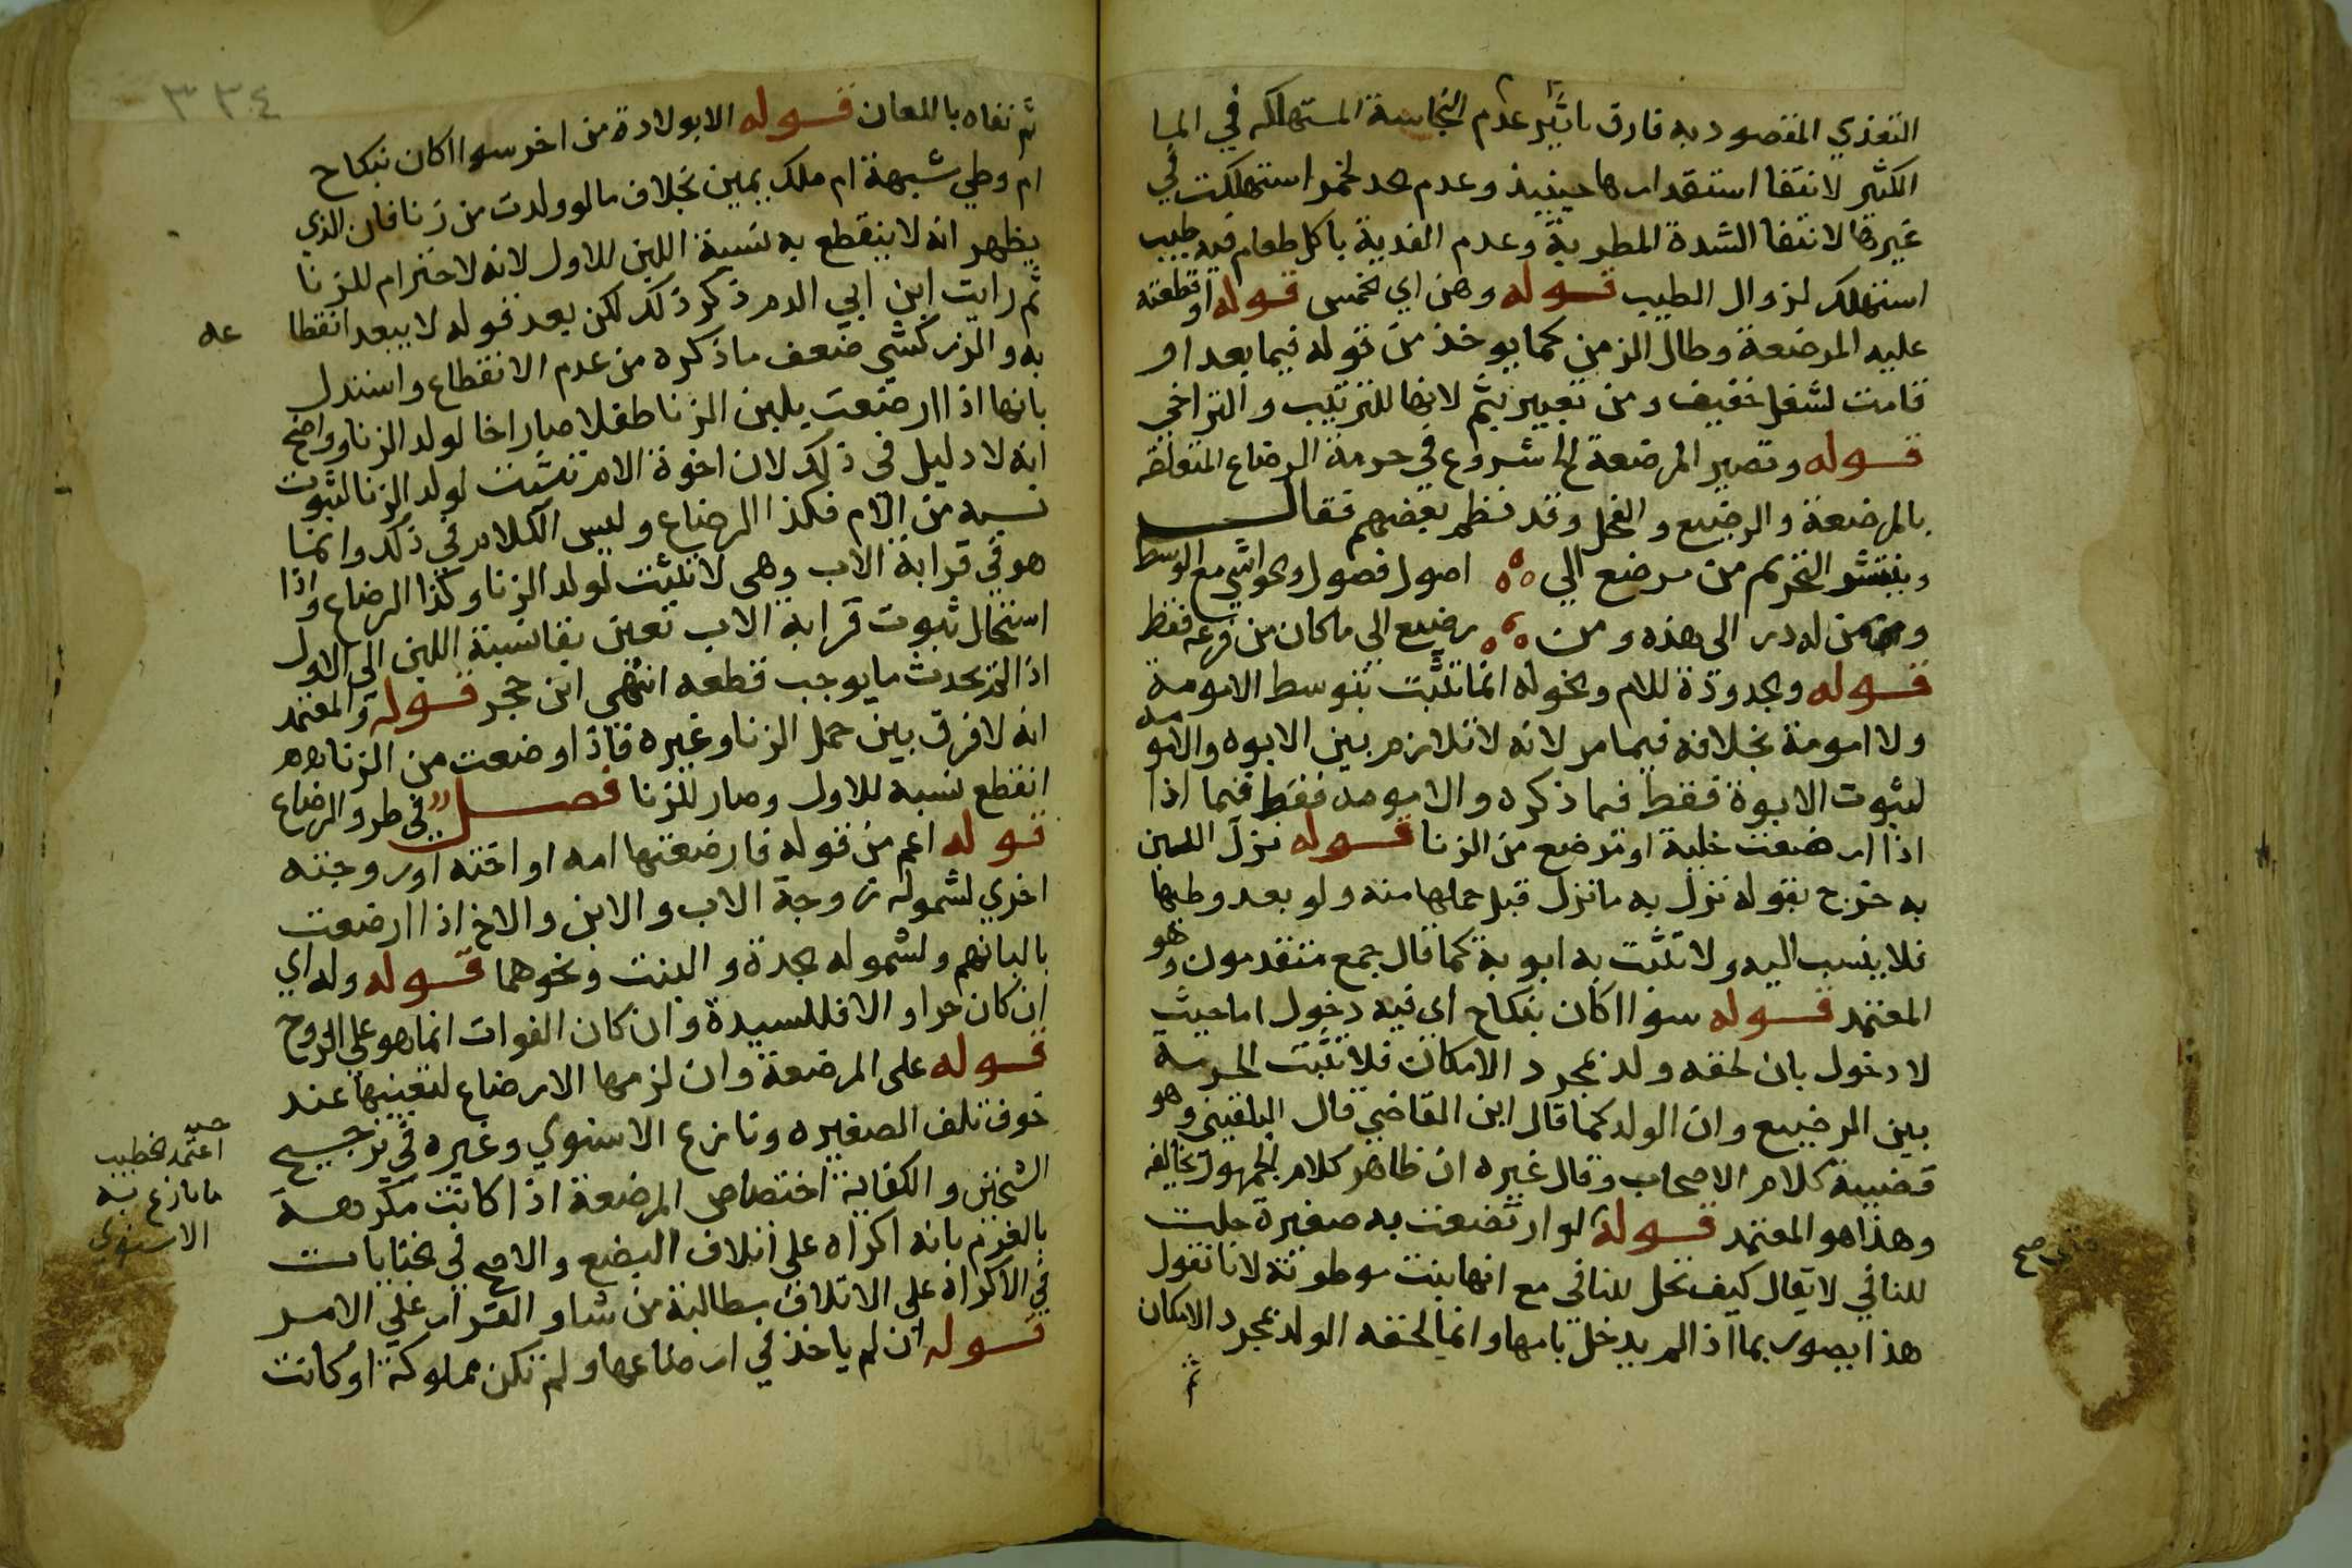 التغذي المقصود به فارق تاثير عدم النجاسة المستهلكه في الما
الكثير لانتفا استقدارها حينيذ وعدم حد لخمر استهلكت في
غيرها لانتفا الشدة المطربة وعدم الفدية باكل طعام فيه طيب
استهلك لزوال الطيب قوله وهن اي الخمس قوله او قطعته
عليه المرضعة وطال الزمن كما يوخذ من قوله فيما بعد او
قامت لشغل خفيف ومن تعبيره بثم لانها للترتيب والتراخي
قوله وتصير المرضعة الخ شروع في حرمة الرضاع المتعلقه
بالمرضعة والرضيع والفحل وقد نظم بعضهم فقال
وينتشر التحريم من مرضع الي اصول فصول والحواشي مع الوسط
وممن له در الى هذه ومن رضيع الى ما كان من فرعه فقط
قوله والجدودة للام والخوله انما تثبت بتوسط الامومة
ولا امومة بخلافه فيما مر لانه لا تلازم بين الابوه والامومه
لثبوت الابوة فقط فيما ذكره والامومه فقط فيما اذا
اذا ارضعت خلية او مرضع من الزنا قوله نزل اللبن
به خرج بقوله نزل به ما نزل قبل حملها منه ولو بعد وطيها
فلا ينسب اليه ولا تثبت به ابوبة كما قال جمع متقدمون وهو
المعتمد قوله سوا اكان بنكاح اي فيه دخول اما حيث
لا دخول بان لحقه ولد بمجرد الامكان فلا تثبت الحرمة
بين الرضيع وان الولد كما قال ابن القاضي قال البلقيني وهو
قضية كلام الاصحاب وقال غيره ان ظاهر كلام الجمهور يخالفه
وهذا هو المعتمد قوله لو ارتضعت به صغيرة حلت
للنافي لا يقال كيف تحل للنافي مع انها بنت موطوءته لانا نقول
هذا يصور بما اذا لم يدخل بامها وانما لحقه الولد بمجرد الامكان
ثم
صح
٣٣٤
ثم نفاه باللعان قوله الا بولادة من اخر سوا اكان بنكاح
ام وطي شبهة ام ملك يمين بخلاف ما لو ولدت من زنا فان الذي
يظهر انه لا ينقطع به نسبة اللبن للاول لانه لا احترام للزنا
ثم رايت ابن ابي الدم ذكر ذلك لكن بعد قوله لا يبعد انقطاعه
به والزركشي ضعف ما ذكره من عدم الانقطاع واستدل
بانها اذا ارضعت بلبن الزنا طفلا صار اخا لولد الزنا وواضح
انه لا دليل في ذلك لان اخوة الام تثبت لولد الزنا لثبوت
نسبه من الام فكذا الرضاع وليس الكلام في ذلك وانما
هو في قرابة الاب وهي لا تثبت لولد الزنا وكذا الرضاع واذا
استحال ثبوت قرابة الاب تعين بقا نسبة اللبن الى الاول
اذ لم يحدث ما يوجب قطعه انتهى ابن حجر قوله والمعتمد
انه لا فرق بين حمل الزنا وغيره فاذا وضعت من الزنا
انقطع نسبه للاول وصار للزنا فصل في طرو الرضاع
قوله اعم من قوله فارضعتها امه او اخته او زوجته
اخري لشموله زوجة الاب والابن والاخ اذا ارضعت
بالبانهم ولشموله الجدة والبنت ونحوهما قوله وله اي
ان كان حرا والا فللسيدة وان كان الفوات انما هو على الزوج
قوله على المرضعة وان لزمها الارضاع لتعينها عند
خوف تلف الصغيره ونازع الاسنوي وغيره في ترجيح
الشيخين والكفاية اختصاص المرضعة اذا كانت مكرهة
بالغرم بانه اكراه على اتلاف البضع والاصح في الجنايات
في الاكراه على الاتلاف مطالبة من شا والقرار علي الامر
قوله ان لم ياخذ في ارضاعها ولم تكن مملوكة او كانت
اعتمد الخطيب
ما نازع فيه
الاسنوي